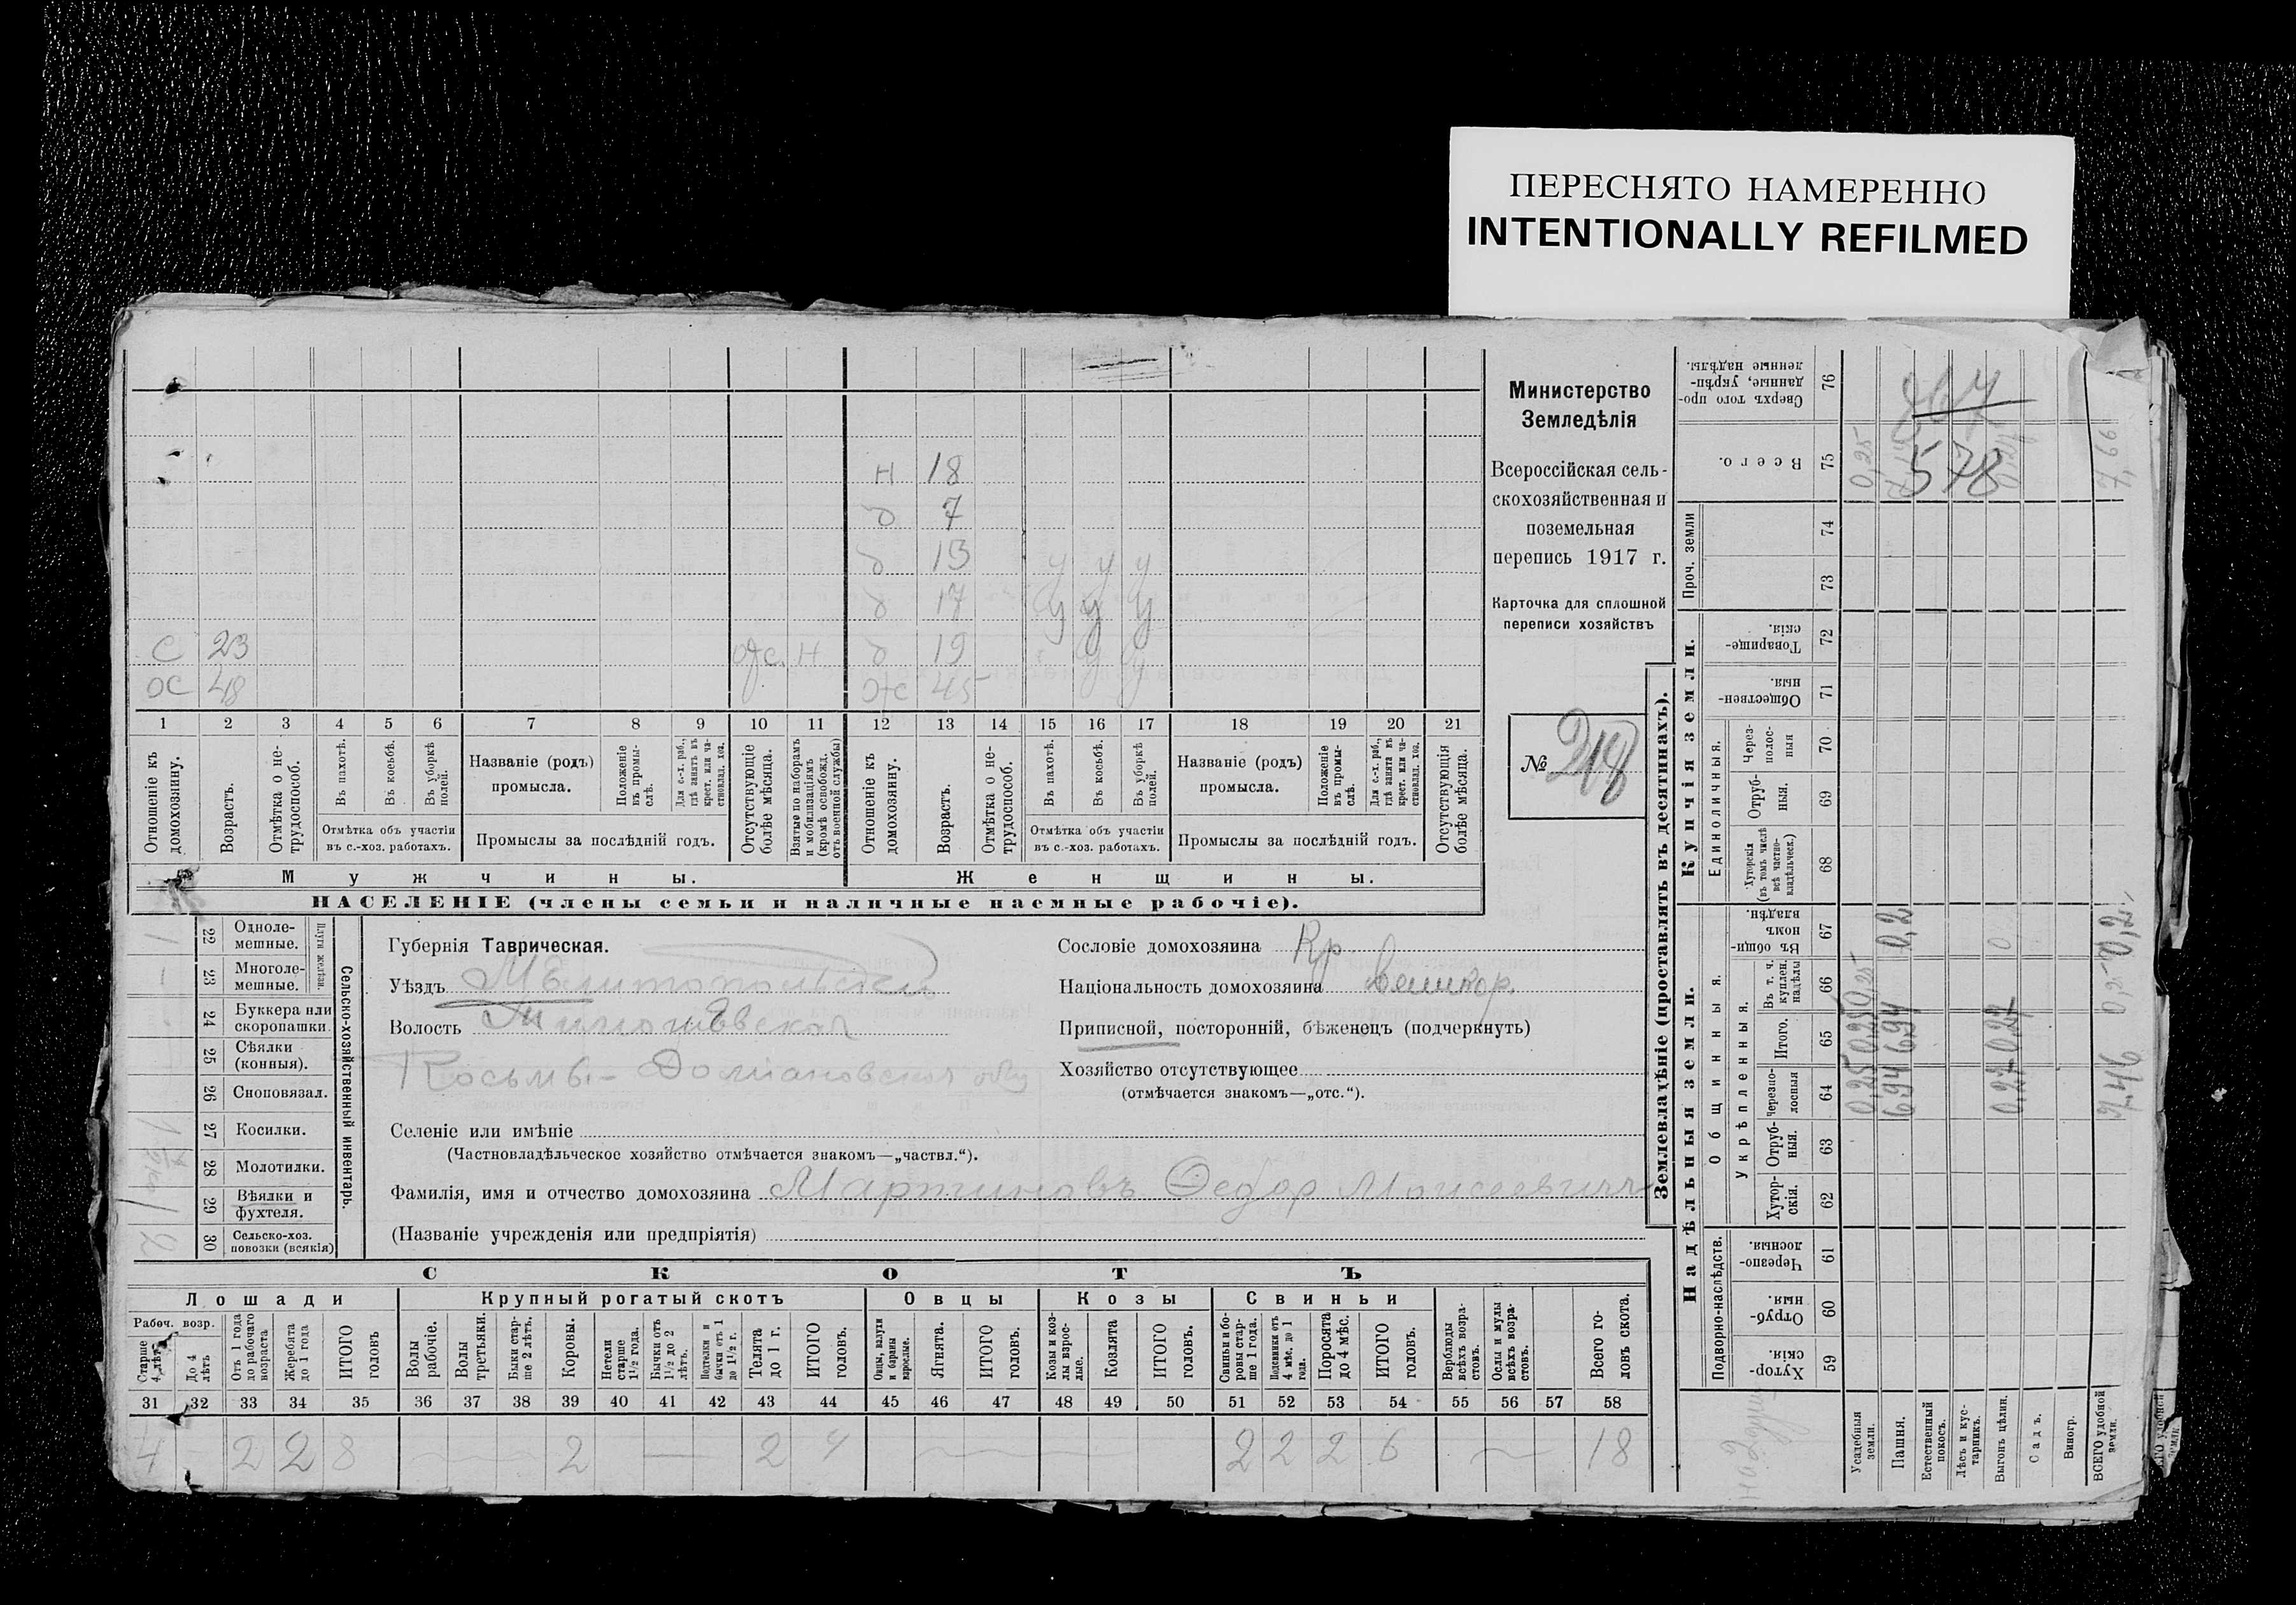 ПЕРЕСНЯТО НАМЕРЕННО
INTENTIONALLY REFILMED
Министерство
Земледѣлія
Всероссійская сель-
скохозяйственная и
поземельная
перепись 1917 г.
Карточка для сплошной
переписи хозяйствъ
№ 218
н 18
д 7
д 13 у у у
д 17 у у у
С 23 отс. н д 19 у у
ОС 48 Ж 45
1 2 3 4 5 6 7 8 9 10 11 12 13 14 15 16 17 18 19 20 21
Отношеніе къ домохозяину.
Возрастъ.
Отмѣтка о не-трудоспособ.
Въ пахотѣ.
Въ косьбѣ.
Въ уборкѣ полей.
Отмѣтка объ участіи
въ с.-хоз. работахъ.
Названіе (родъ)
промысла.
Положеніе въ промы-слѣ.
Для с.-х. раб., гдѣ занятъ въ крест. или ча-стновлад. хоз.
Промыслы за послѣдній годъ.
Отсутствующіе болѣе мѣсяца.
Взятые по наборамъ и мобилизаціямъ (кромѣ освобожд. отъ военной службы)
Отношеніе къ домохозяину.
Возрастъ.
Отмѣтка о не-трудоспособ.
Въ пахотѣ.
Въ косьбѣ.
Въ уборкѣ полей.
Отмѣтка объ участіи
въ с.-хоз. работахъ.
Названіе (родъ)
промысла.
Положеніе въ промы-слѣ.
Для с.-х. раб., гдѣ занята въ крест. или ча-стновлад. хоз.
Промыслы за послѣдній годъ.
Отсутствующія болѣе мѣсяца.
Мужчины.
Женщины.
НАСЕЛЕНІЕ (члены семьи и наличные наемные рабочіе).
Сельско-хозяйственный инвентарь.
Плуги желѣзн.
22 Одноле-мешные.
23 Многоле-мешные.
24 Буккера или скоропашки.
25 Сѣялки (конныя).
26 Сноповязал.
27 Косилки.
28 Молотилки.
29 Вѣялки и фухтеля.
30 Сельско-хоз. повозки (всякія)
Губернія Таврическая.
Уѣздъ Мелитопольскій
Волость Тимошевская
Косьмо-Доміановское общ
Селеніе или имѣніе
(Частновладѣльческое хозяйство отмѣчается знакомъ—„частвл.“).
Фамилія, имя и отчество домохозяина Мартиновъ Федор Моисеевичъ
(Названіе учрежденія или предпріятія)
Сословіе домохозяина Кр
Національность домохозяина великор.
Приписной, посторонній, бѣженецъ (подчеркнуть)
Хозяйство отсутствующее
(отмѣчается знакомъ—„отс.“).
СКОТЪ
Лошади
Крупный рогатый скотъ
Овцы
Козы
Свиньи
Рабоч. возр.
Старше 4 лѣтъ
До 4 лѣтъ
Отъ 1 года до рабочаго возраста
Жеребята до 1 года
ИТОГО головъ
Волы рабочіе.
Волы третьяки.
Быки стар-ше 2 лѣтъ.
Коровы.
Нетели старше 1½ года.
Бычки отъ 1½ до 2 лѣтъ.
Подтелки и бычки отъ 1 до 1½ г.
Телята до 1 г.
ИТОГО головъ.
Овцы, валухи и бараны взрослые.
Ягнята.
ИТОГО головъ.
Козы и коз-лы взрос-лые.
Козлята
ИТОГО головъ.
Свиньи и бо-ровы стар-ше 1 года.
Подсвинки отъ 4 мѣс. до 1 года.
Поросята до 4 мѣс.
ИТОГО головъ.
Верблюды всѣхъ возра-стовъ.
Ослы и мулы всѣхъ возра-стовъ.
Всего го-ловъ скота.
31 32 33 34 35 36 37 38 39 40 41 42 43 44 45 46 47 48 49 50 51 52 53 54 55 56 57 58
4 2 2 8 2 — 2 4 2 2 2 6 18
Землевладѣніе (проставлять въ десятинахъ).
Надѣльныя земли.
Купчія земли.
Подворно-наслѣдств.
Общинныя.
Укрѣпленныя.
Единоличныя.
Проч. земли
Хутор-скія. 59
Отруб-ныя. 60
Черезпо-лосныя. 61
Хутор-скія. 62
Отруб-ныя. 63
Черезпо-лосныя 64
Итого. 65
Въ т. ч. куплен. надѣлы 66
Въ общи-номъ владѣн. 67
Хуторскія (въ томъ числѣ всѣ частно-владѣльческ.) 68
Отруб-ныя. 69
Через-полос-ныя 70
Обществен-ныя. 71
Товарище-скія. 72
73
74
Всего. 75
Сверхъ того про-данные, укрѣп-ленные надѣлы. 76
Усадебныя земли. 0,25 0,25 0,25 0,25
Пашня. 694 694 0,2
Естественный покосъ.
Лѣсъ и кус-тарникъ.
Выгонъ цѣлин. 0,27 0,27
Садъ.
Виногр.
ВСЕГО удобной земли. 7,46 0,25 0,2 7,66
578